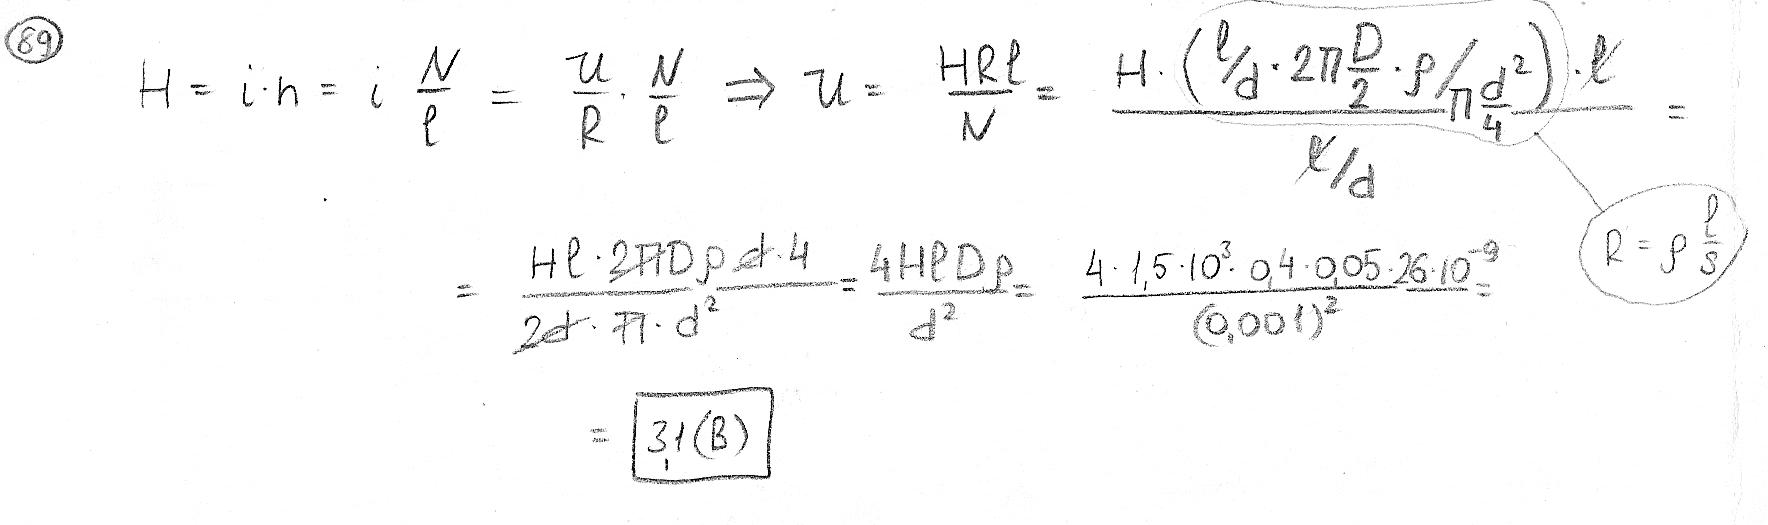 89
H = i·n = i N/l = U/R · N/l ⇒ U = HRl/N = H·(l/d · 2π D/2 · ρ/π d²/4)·l / l/d =
= Hl·2πDρd·4 / 2d·π·d² = 4HlDρ/d² = 4·1,5·10³·0,4·0,05·26·10⁻⁹ / (0,001)² =
R = ρ l/s
= 3,1(B)